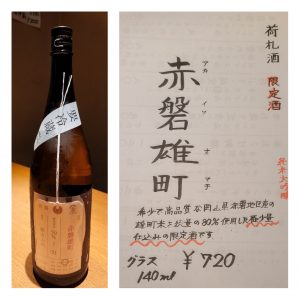 要冷蔵
赤磐雄町
荷札酒
限定酒
アカ イワ オ マチ
赤磐雄町
純米大吟醸
希少で高品質な岡山県赤磐地区産の
雄町米を
使用した極少量
仕込みの限定酒です
グラス
140ml
¥720